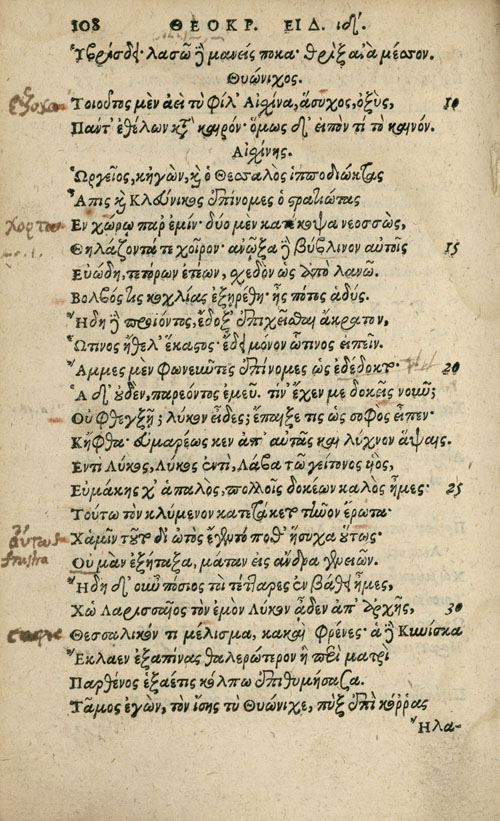 108 ΘΕΟΚΡ. ΕΙΔ. ιδʹ.
Ὑβρίσδει· λασῶ δὲ μανείς ποκα· θρὶξ ἀνὰ μέσσον.
Θυώνιχος.
Τοιοῦτος μὲν ἀεὶ τὺ φίλ' Αἰχίνα, ἅσυχος, ὀξὺς, 10
Πάντ' ἐθέλων κατὰ καιρόν· ὅμως δ' εἰπόν τί τὸ καινόν.
Αἰχίνης.
Ὡργεῖος, κἠγὼν, καὶ ὁ Θεσσαλὸς ἱπποδιώκτας
Ἄπις καὶ Κλεύνικος ἐπίνομες ὁ στρατιώτας
Ἐν χώρῳ παρ' ἐμίν· δύο μὲν κατέκοψα νεοσσὼς,
Θηλάζοντά τε χοῖρον· ἀνῷξα δὲ βύβλινον αὐτοῖς 15
Εὐώδη, τετόρων ἐτέων, σχεδὸν ὡς ἀπὸ λανῶ.
Βολβός τις κοχλίας ἐξῃρέθη· ἧς πότος ἁδύς.
Ἤδη δὲ προϊόντος, ἔδοξ' ἐπιχεῖσθαι ἄκρατον,
Ὧτινος ἤθελ' ἕκαστος· ἔδει μόνον ὧτινος εἰπεῖν.
Ἄμμες μὲν φωνεῦντες ἐπίνομες ὡς ἐδέδοκτ' 20
Ἁ δ' οὐδὲν, παρεόντος ἐμεῦ. τίν' ἔχεν με δοκεῖς νοῦν;
Οὐ φθεγξῇ; λύκον εἶδες; ἔπαιξέ τις ὡς σοφὸς εἶπεν·
Κἤφθα· εὐμαρέως κεν ἀπ' αὐτᾶς καὶ λύχνον ἅψαις.
Ἐντὶ Λύκος, Λύκος ἐντὶ, Λάβα τῶ γείτονος υἱὸς,
Εὐμάκης χ' ἁπαλὸς, πολλοῖς δοκέων καλὸς ἦμες· 25
Τούτω τὸν κλύμενον κατετάκετο τῆνον ἔρωτα·
Χἁμῖν τοῦτο δι' ὠτὸς ἔγεντο ποθ' ἥσυχα οὕτως·
Οὐ μὰν ἐξήταξα, μάταν εἰς ἄνδρα γενειῶν.
Ἤδη δ' οὖν πόσιος τοὶ τέτταρες ἐν βάθει ἦμες,
Χὠ Λαρισσαῖος τὸν ἐμὸν Λύκον ᾆδεν ἀπ' ἀρχῆς, 30
Θεσσαλικόν τι μέλισμα, κακαὶ φρένες· ἁ δὲ Κυνίσκα
Ἔκλαεν ἐξαπίνας θαλερώτερον ἢ παρὰ ματρὶ
Παρθένος ἑξαέτις κόλπω ἐπιθυμήσασα.
Τᾶμος ἐγὼν, τὸν ἴσης τὺ Θυώνιχε, πὺξ ἐπὶ κόρρας
Ἤλα-
frustra